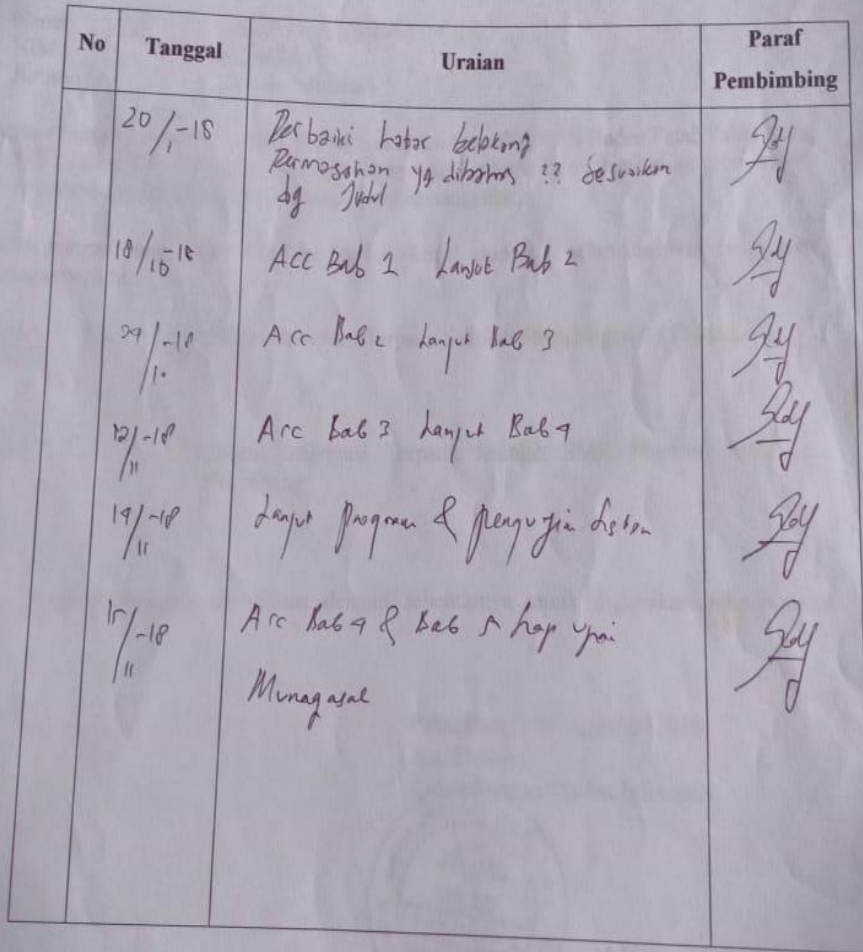 No Tanggal Uraian Paraf Pembimbing
20/1-18 Perbaiki Latar belakang
Permasahan yg dibahas ?? Sesuaikan
dg Judul
18/10-18 Acc Bab 1 Lanjut Bab 2
29/10-18 Acc Bab 2 Lanjut Bab 3
12/11-18 Acc Bab 3 Lanjut Bab 4
14/11-18 Lanjut Program & pengujian
15/11-18 Acc Bab 4 & Bab 5
Munaqasah